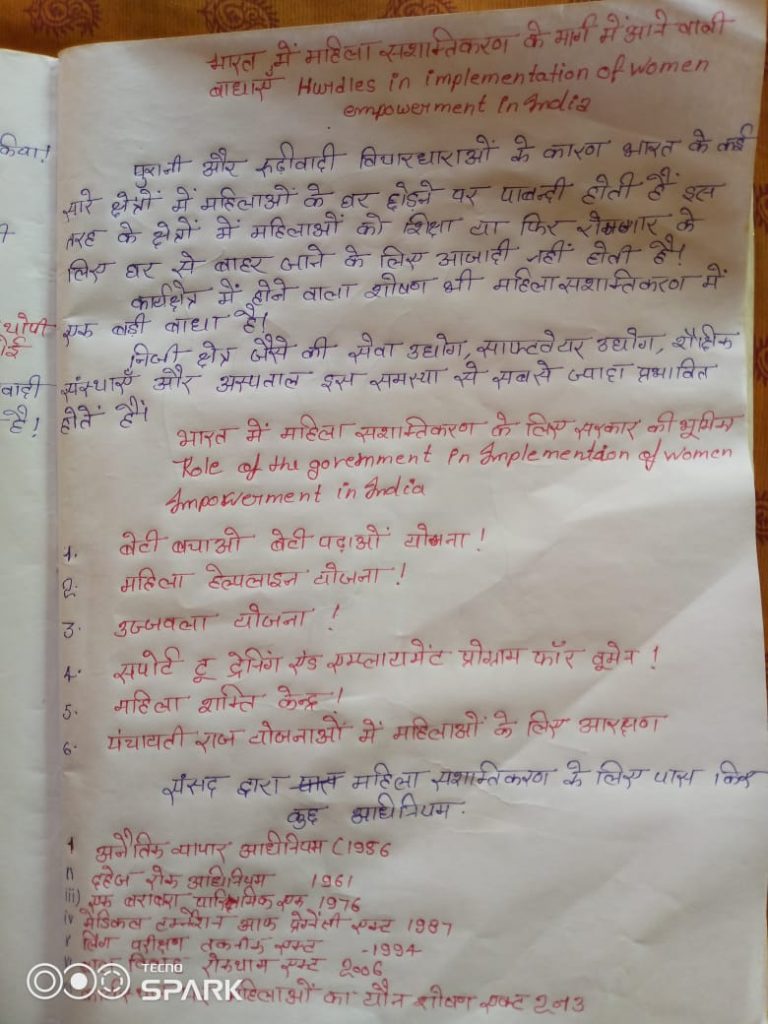 भारत में महिला सशाक्तिकरण के मार्ग में आने वाली
बाधाएँ Hurdles in implementation of women
empowerment in India
किया!
पुरानी और रूढ़ीवादी विचारधाराओं के कारण भारत के कई
सारे क्षेत्रों में महिलाओं के घर छोडने पर पाबन्दी होती है इस
तरह के क्षेत्रों में महिलाओं को शिक्षा या फिर रोजगार के
लिए घर से बाहर जाने के लिए आजादी नहीं होती है!
कार्यक्षेत्र में होने वाला शोषण भी महिला सशाक्तिकरण में
थोपी
एक बडी बाधा है!
निजी क्षेत्र जैसे की सेवा उद्योग, साफ्टवेयर उद्योग, शैक्षिक
वादी
संस्थाएँ और अस्पताल इस समस्या से सबसे ज्यादा प्रभावित
है!
होतें हैं!
भारत में महिला सशाक्तिकरण के लिए सरकार की भूमिका
Role of the government in Implementaion of women
Impowerment in India
1. बेटी बचाओ बेटी पढ़ाओं योजना!
2. महिला हेल्पलाइन योजना!
3. उज्जवला योजना!
4. सपोर्ट टू ट्रेनिंग एंड एम्प्लायमेंट प्रोग्राम फॉर वूमेन!
5. महिला शक्ति केन्द्र!
6. पंचायती राज योजनाओं में महिलाओं के लिए आरक्षण
संसद द्वारा पास महिला सशाक्तिकरण के लिए पास किए
कुछ आधिनियम.
अनैतिक व्यापार आधिनियम (1956
दहेज रोक आधिनियम 1961
iii) एक बराबर पारिश्रमिक एक्ट 1976
iv मेडिकल टर्म्नेशन आफ प्रेग्नेंसी एक्ट 1987
v लिंग परीक्षण तकनीक एक्ट -1994
रोकथाम एक्ट 2006
महिलाओं का यौन शोषण एक्ट
TECNO
SPARK